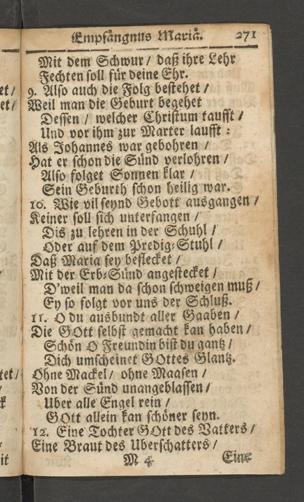 Empfängnus Mariä. 271
Mit dem Schwur / daß ihre Lehr
Fechten soll für deine Ehr.
9. Also auch die Folg bestehet /
Weil man die Geburt begehet
Dessen / welcher Christum taufft /
Und vor ihm zur Marter laufft:
Als Johannes war gebohren /
Hat er schon die Sünd verlohren /
Also folget Sonnen klar /
Sein Geburth schon heilig war.
10. Wie vil seynd Gebott ausgangen /
Keiner soll sich unterfangen /
Dis zu lehren in der Schuhl /
Oder auf dem Predig-Stuhl /
Daß Maria sey beflecket /
Mit der Erb-Sünd angestecket /
D'weil man da schon schweigen muß /
Ey so folgt vor uns der Schluß.
11. O du ausbundt aller Gaaben /
Die GOtt selbst gemacht kan haben /
Schön O Freundin bist du gantz /
Dich umscheinet GOttes Glantz.
Ohne Mackel / ohne Maasen /
Von der Sünd unangeblassen /
Uber alle Engel rein /
GOtt allein kan schöner seyn.
12. Eine Tochter GOtt des Vatters /
Eine Braut des Uberschatters /
M 4 Eine